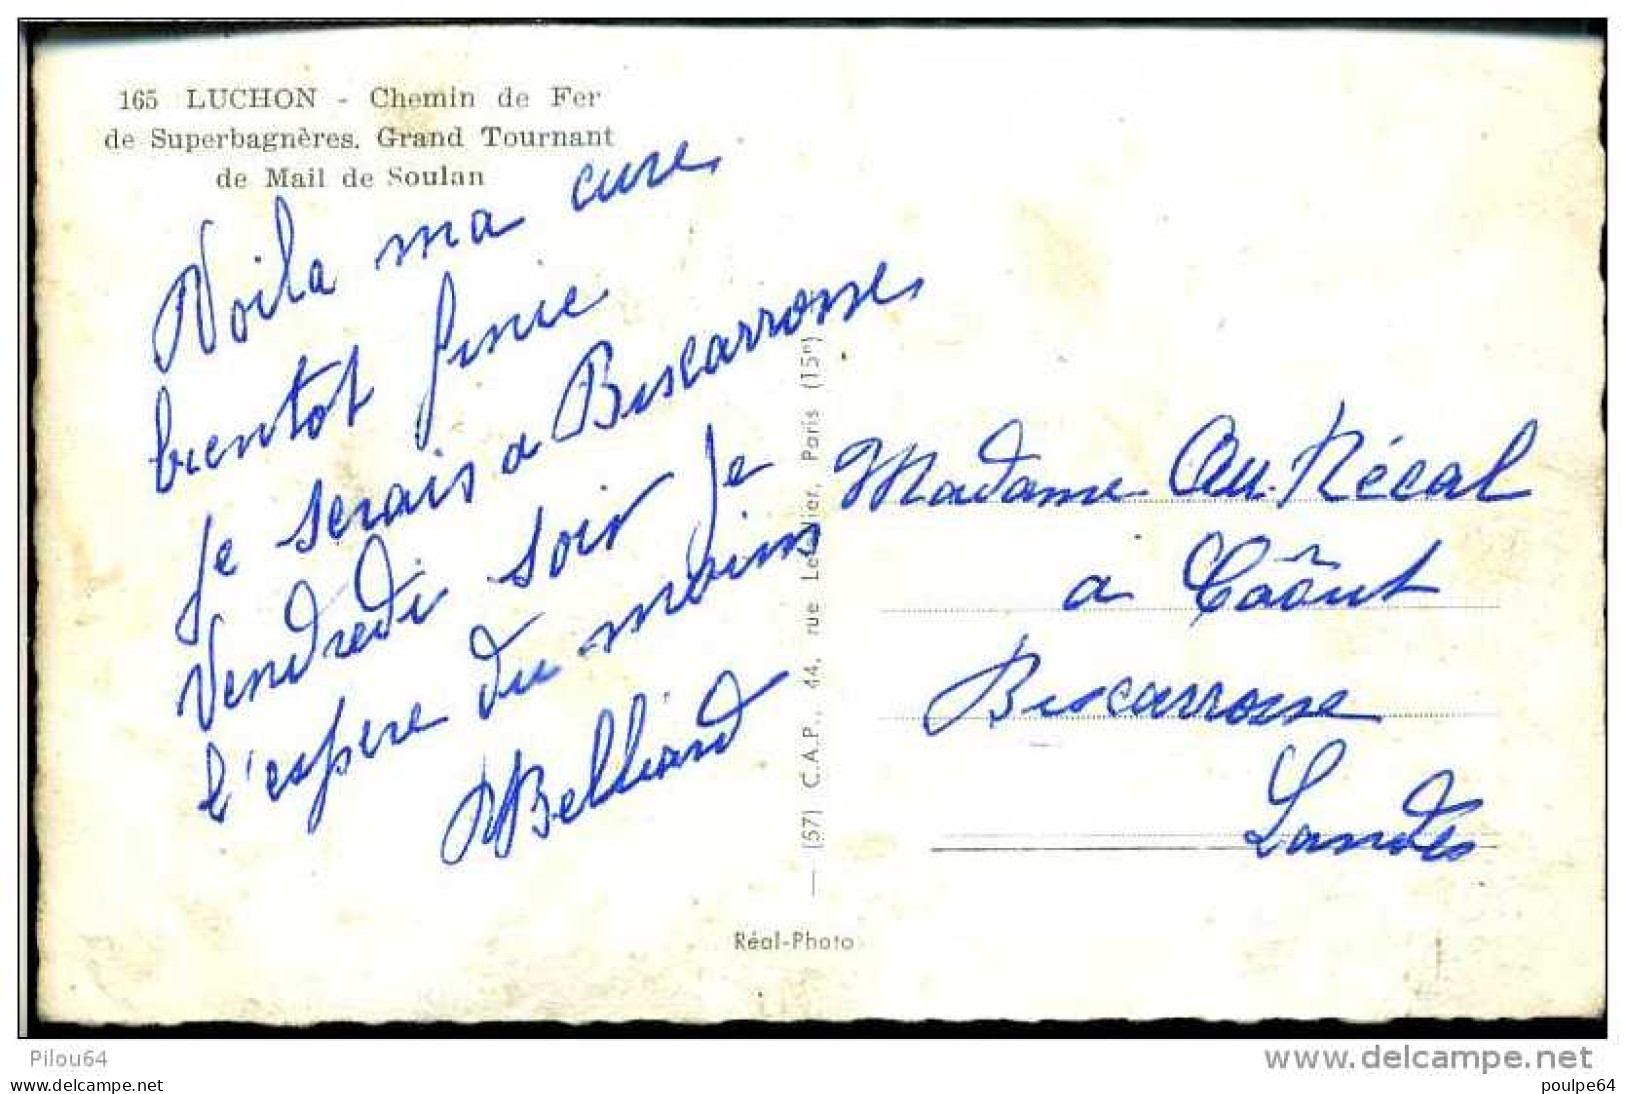 165 LUCHON - Chemin de Fer
de Superbagnères. Grand Tournant
de Mail de Soulan
Voila ma cure
bientot finie
je serais a Biscarrosse
Vendredi soir je
l'espere du moins
Belliard
(57) C.A.P., 44, rue Letellier, Paris (15e)
Madame Récal
a Caôut
Biscarrosse
Landes
Réal-Photo
Pilou64
www.delcampe.net
www.delcampe.net
poulpe64